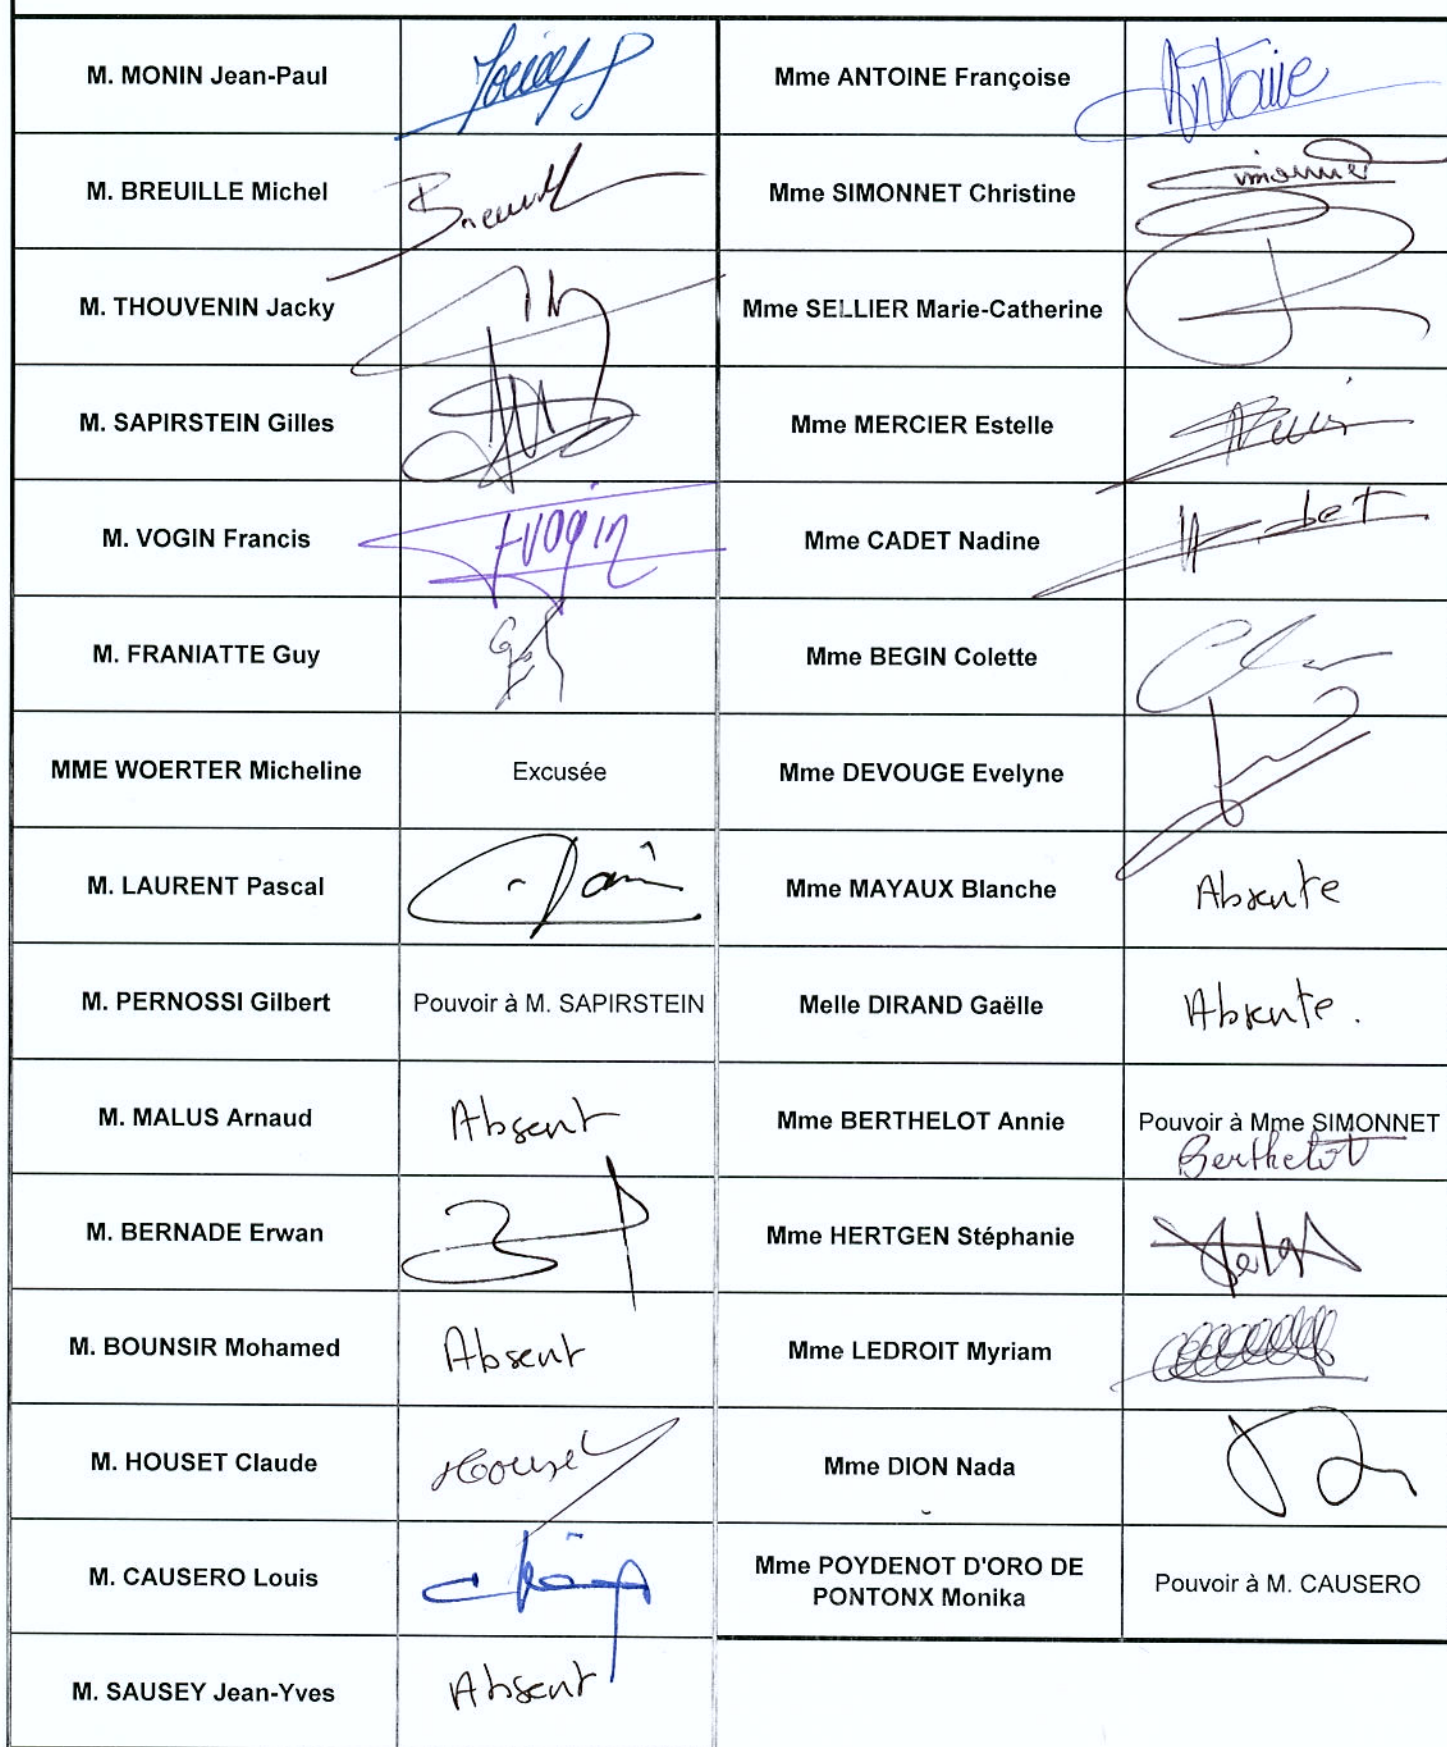 M. MONIN Jean-Paul
Mme ANTOINE Françoise
Antoine
M. BREUILLE Michel
Breuill
Mme SIMONNET Christine
Simonnet
M. THOUVENIN Jacky
Mme SELLIER Marie-Catherine
M. SAPIRSTEIN Gilles
Mme MERCIER Estelle
M. VOGIN Francis
FVogin
Mme CADET Nadine
M. FRANIATTE Guy
Mme BEGIN Colette
MME WOERTER Micheline
Excusée
Mme DEVOUGE Evelyne
M. LAURENT Pascal
Mme MAYAUX Blanche
Absente
M. PERNOSSI Gilbert
Pouvoir à M. SAPIRSTEIN
Melle DIRAND Gaëlle
Absente.
M. MALUS Arnaud
Absent
Mme BERTHELOT Annie
Pouvoir à Mme SIMONNET
Berthelot
M. BERNADE Erwan
Mme HERTGEN Stéphanie
M. BOUNSIR Mohamed
Absent
Mme LEDROIT Myriam
M. HOUSET Claude
Houset
Mme DION Nada
M. CAUSERO Louis
Mme POYDENOT D'ORO DE
PONTONX Monika
Pouvoir à M. CAUSERO
M. SAUSEY Jean-Yves
Absent